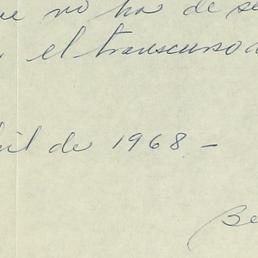 no ha de
el transcurso
de 1968 -
Be